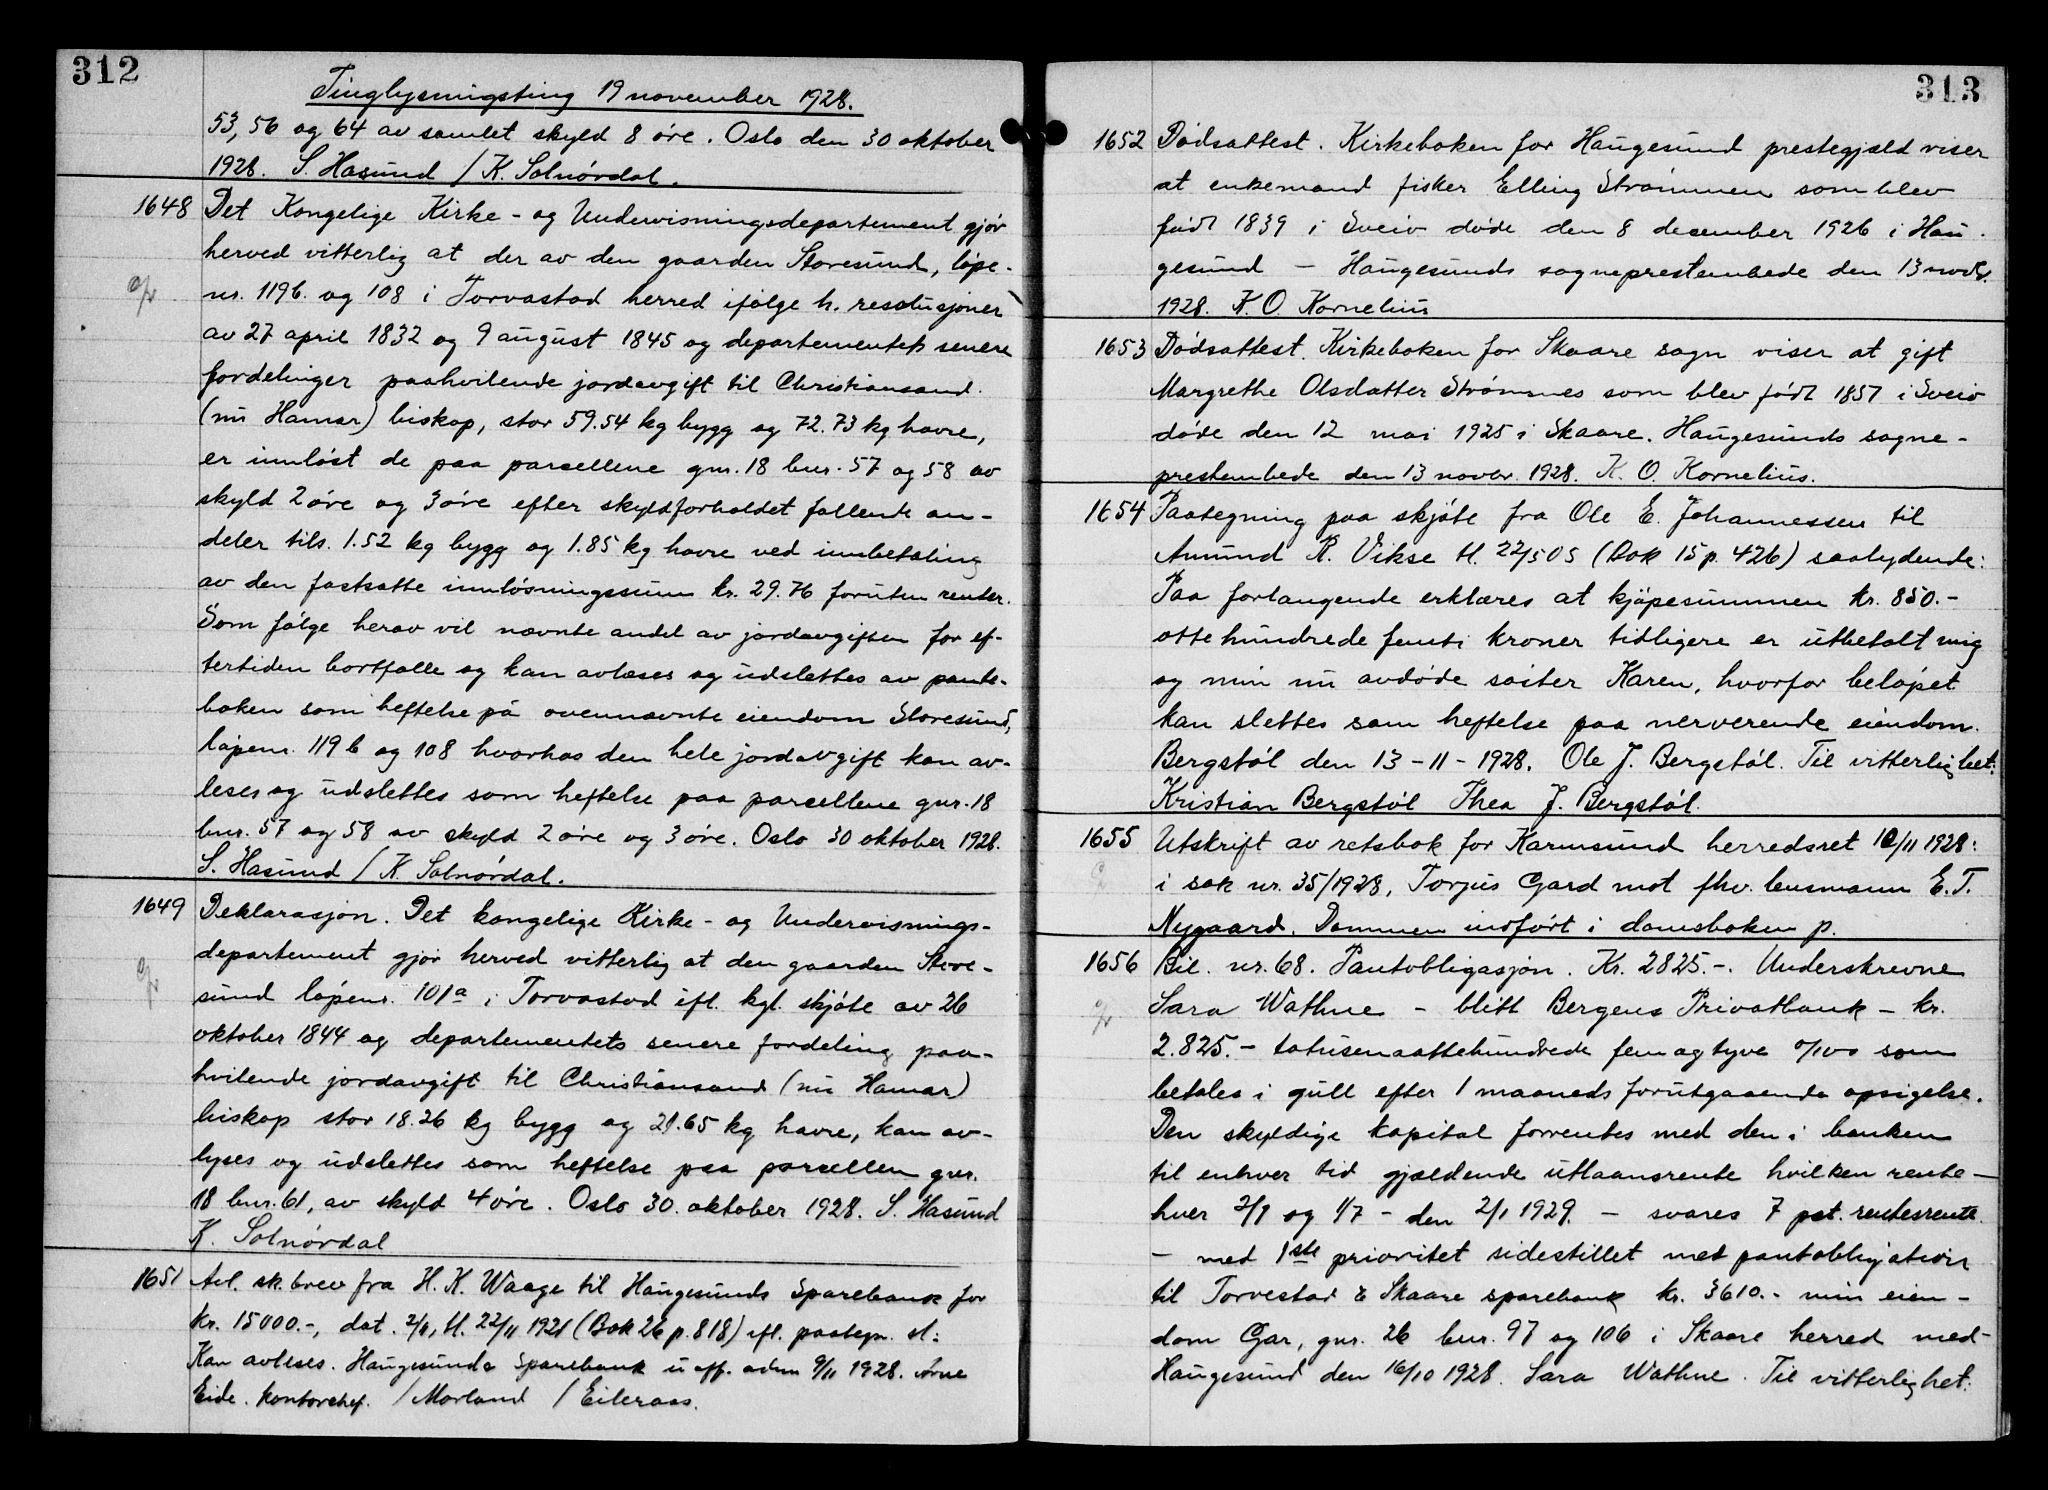 312
Tinglysningsting 19 november 1928.
53, 56 og 64 av samlet skyld 8 øre. Oslo den 30 oktober
1928. S. Hasund / K. Solnørdal.
1648 Det Kongelige Kirke- og Undervisningsdepartement gjør
herved vitterlig at der av den gaarden Storesund, løpe-
nr. 119b. og 108 i Torvastad herred ifølge h. resolusjoner
av 27 april 1832 og 9 august 1845 og departementets senere
fordelinger paahvilende jordavgift til Christiansand.
(nu Hamar) biskop, stor 59.54 kg bygg og 72.73 kg havre,
er innløst de paa parsellene gnr. 18 bnr. 57 og 58 av
skyld 2 øre og 3 øre efter skyldforholdet fallende an-
deler tils. 1.52 kg bygg og 1.85 kg havre ved innbetaling
av den fastsatte innløsningssum kr. 29.76 foruten renter.
Som følge herav vil nævnte andel av jordavgiften for ef-
tertiden bortfalle og kan avlæses og udslettes av pante-
boken som heftelse på ovennævnte eiendom Storesund,
løpenr. 119b og 108 hvorhos den hele jordavgift kan av-
leses og udslettes som heftelse paa parsellene gnr. 18
bnr. 57 og 58 av skyld 2 øre og 3 øre. Oslo 30 oktober 1928.
S. Hasund / K. Solnørdal.
1649 Deklarasjon. Det kongelige Kirke- og Undervisnings-
departement gjør herved vitterlig at den gaarden Store-
sund løpenr. 101a i Torvastad ifl. kgl. skjøte av 26
oktober 1844 og departementets senere fordeling paa-
hvilende jordavgift til Christiansand (nu Hamar)
biskop stor 18.26 kg bygg og 21.65 kg havre, kan av-
lyses og udslettes som heftelse paa parsellen gnr.
18 bnr. 61, av skyld 4 øre. Oslo 30. oktober 1928. S. Hasund
K. Solnørdal
1651 Avl. sk.brev fra H. K. Waage til Haugesunds Sparebank for
kr. 15000.-, dat. 2/11, tl. 22/11 1921 (Bok 26 p. 818) ifl. paategn. sl:
Kan avleses. Haugesunds Sparebank u off. adm 9/11 1928. Arne
Eide. kontorchef. / Morland / Eileraas.
313
1652 Dødsattest. Kirkeboken for Haugesund prestegjæld viser
at enkemand fisker Elling Strømmen som blev
født 1839 i Sveio døde den 8 december 1926 i Hau-
gesund - Haugesunds sogneprestembede den 13 novbr.
1928. K. O. Kornelius
1653 Dødsattest. Kirkeboken for Skaare sogn viser at gift
Margrethe Olsdatter Strømnes som blev født 1857 i Sveio
døde den 12 mai 1925 i Skaare. Haugesunds sogne-
prestembede den 13 novbr. 1928. K. O. Kornelius.
1654 Paategning paa skjøte fra Ole E. Johannessen til
Amund R. Vikse tl. 22/5 05 (Bok 15 p. 426) saalydende:
Paa forlangende erklæres at kjøpesummen kr. 850.-
otte hundrede femti kroner tidligere er utbetalt mig
og min nu avdøde søster Karen, hvorfor beløpet
kan slettes som heftelse paa nerverende eiendom.
Bergstøl den 13-11-1928. Ole J. Bergstøl. Til vitterlighet:
Kristian Bergstøl Thea J. Bergstøl.
1655 Utskrift av retsbok for Karmsund herredsret 10/11 1928:
i sak nr. 35/1928, Torjus Gard mot fhv. lensmann E. T.
Nygaard. Dommen indført i domsboken p.
1656 Bil. nr. 68. Pantobligasjon. Kr. 2825.-. Underskrevne
Sara Wathne - blitt Bergens Privatbank - kr.
2.825.- totusenaattehundrede fem og tyve 0/100 som
betales i gull efter 1 maaneds forutgaaende opsigelse.
Den skyldige kapital forrentes med den i banken
til enhver tid gjældende utlaansrente hvilken rente -
hver 2/1 og 1/7 - den 2/1 1929. - svares 7 pct. rentesrente
- med 1ste prioritet sidestillet met pantobligation
til Torvestad & Skaare sparebank kr. 3610.- min eien-
dom Gar, gnr. 26 bnr. 97 og 106 i Skaare herred med-
Haugesund den 16/10 1928. Sara Wathne. Til vitterlighet: